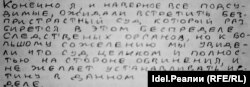 КОНЕЧНО Я, И НАВЕРНОЕ ВСЕ ПОДСУ-
ДИМЫЕ, ОЖИДАЛИ ВСТРЕТИТЬ БЕС-
ПРИСТРАСТНЫЙ СУД КОТОРЫЙ РАЗ-
БЕРЕТСЯ В ЭТОМ БЕСПРЕДЕЛЕ
СЛЕДСТВЕННЫХ ОРГАНОВ, НО К БО-
ЛЬШОМУ СОЖЕЛЕНИЮ МЫ УВИДЕ-
ЛИ ЧТО СУД ЦЕЛИКОМ И ПОЛНОС-
ТЬЮ НА СТОРОНЕ ОБВИНЕНИЯ, И
НЕ ЖЕЛАЕТ УСТАНАВЛИВАТЬ ИС-
ТИНУ В ДАННОМ
ДЕЛЕ
Idel.Реалии (RFE/RL)